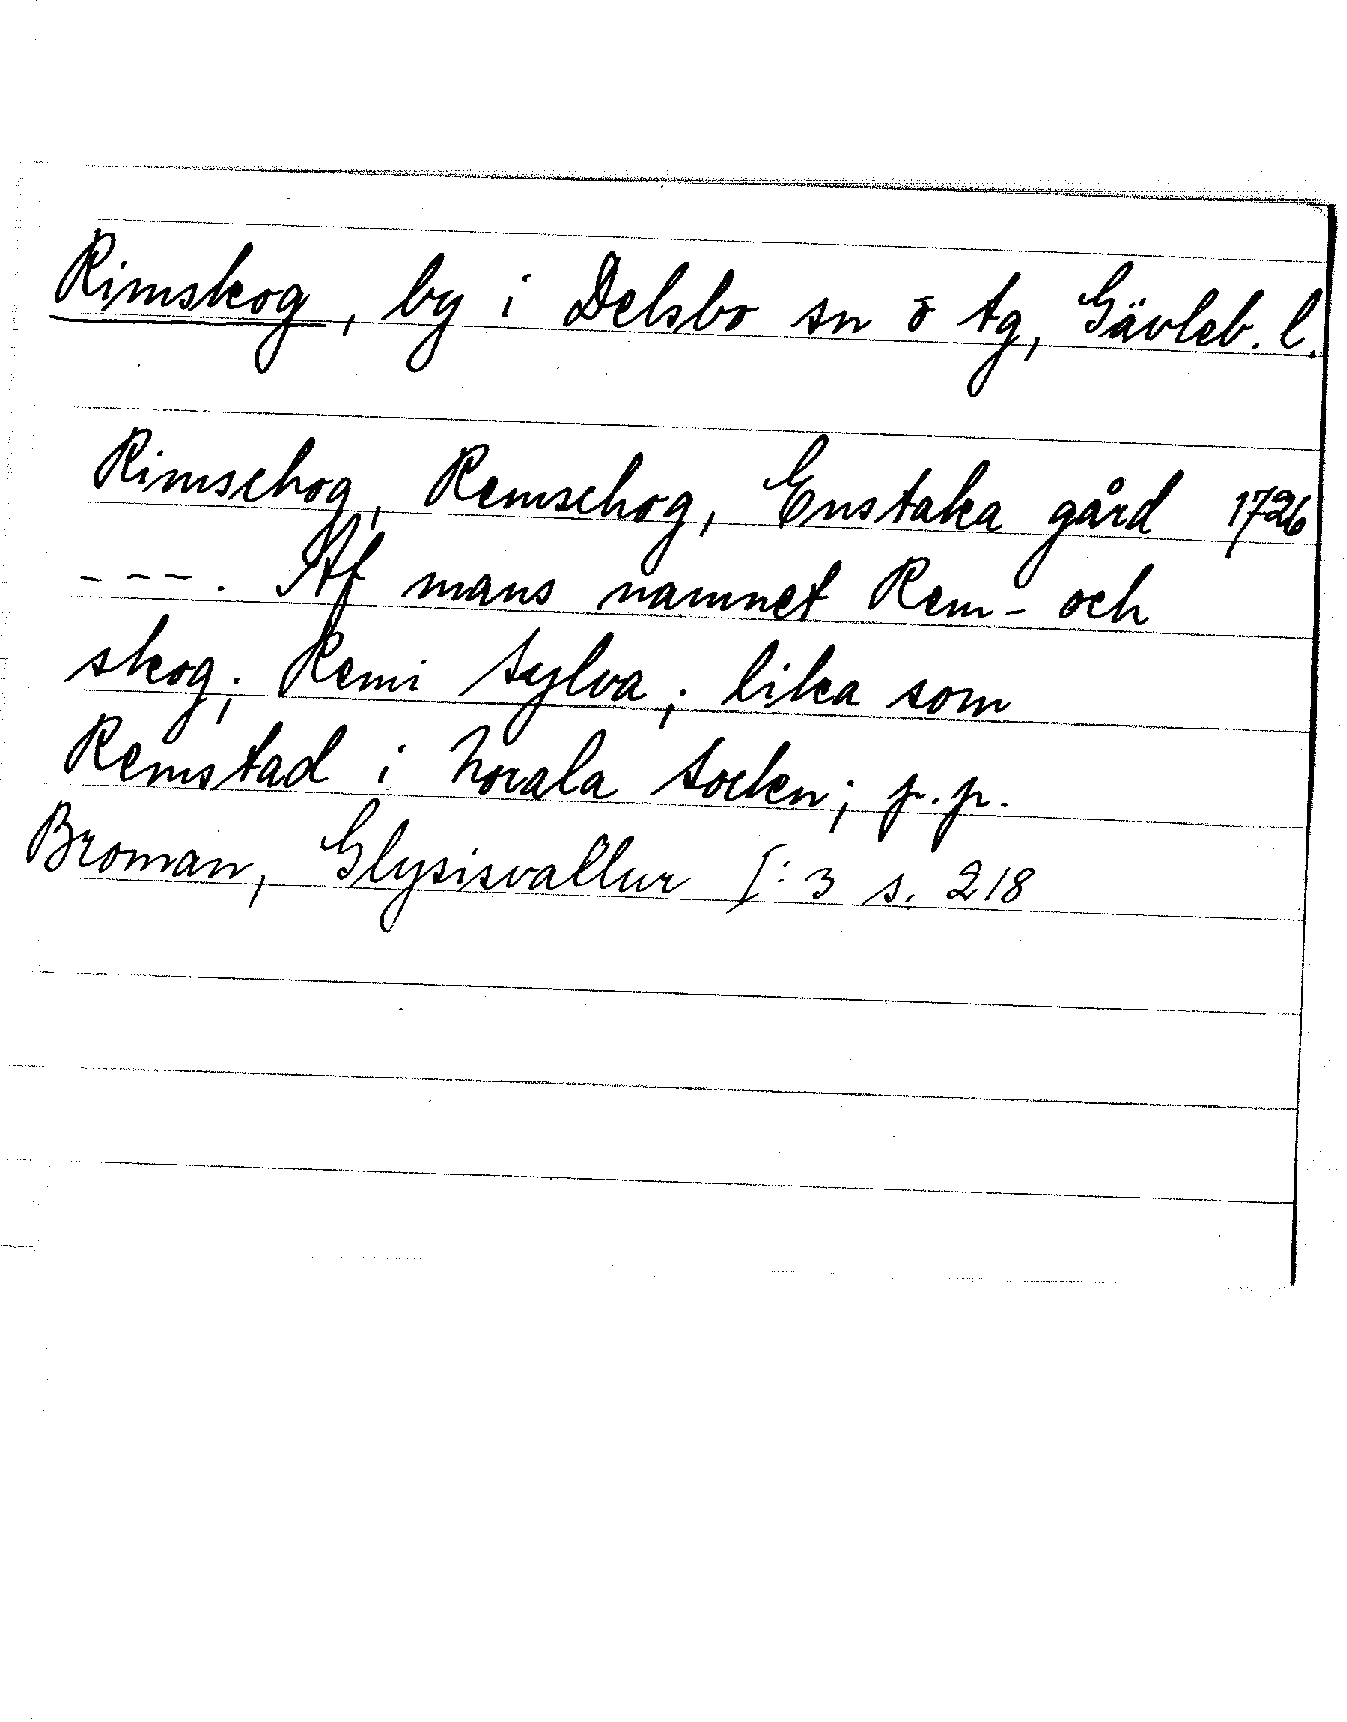 Rimskog, by i Delsbo sn o tg, Gävleb. l.
Rimschog, Remschog, Enstaka gård 1726
---. Af mans namnet Rem- och
skog; Remi sylva; lika som
Remstad i Norala socken; p.p.
Broman, Glysisvallur I:3 s. 218